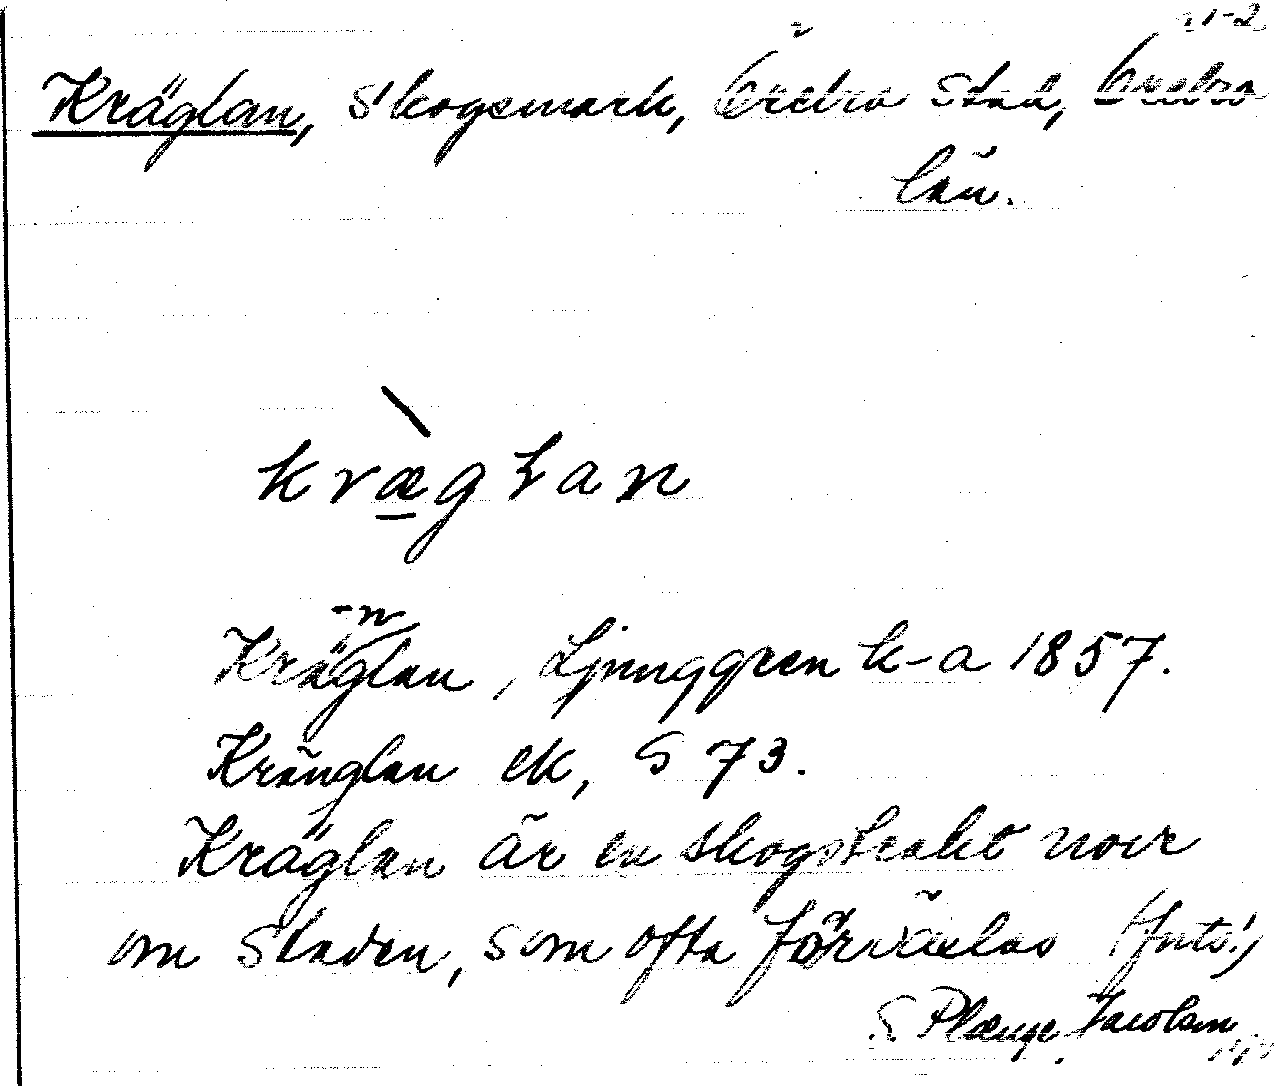 Kräglan, Skogsmark, Örebro stad, Örebro
län.
kræglan
-n
Kräglan, Ljunggren k-a 1857.
Kränglan ek, G 73.
Kräglan är en skogstrakt norr
om staden, som ofta förväxlas
S Plænge Jacobson